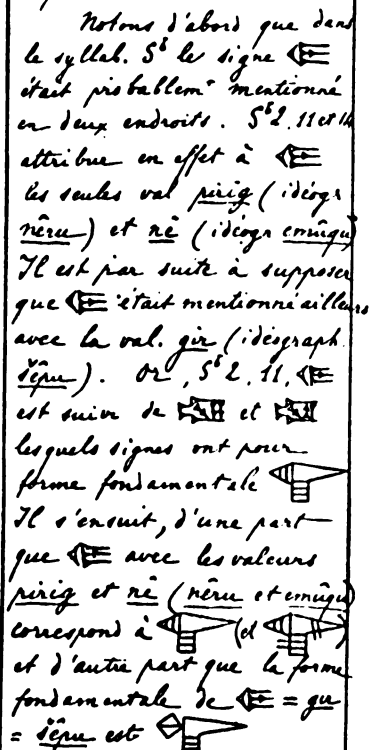 Notons d'abord que dans
le syllab. Sᵇ le signe
était probablemᵗ mentionné
en deux endroits. Sᵇ 2. 11 et 14
attribue en effet à
les seules val pirig (idéogr
nêru) et nê (idéogr emûqu)
Il est par suite à supposer
que était mentionné ailleurs
avec la val. gir (idéograph.
šêpu). Or, Sᵇ 2, 11,
est suivi de et
lesquels signes ont pour
forme fondamentale
Il s'ensuit, d'une part
que avec les valeurs
pirig et nê (nêru et emûqu)
correspond à (et )
et d'autre part que la forme
fondamentale de =
= šêpu est